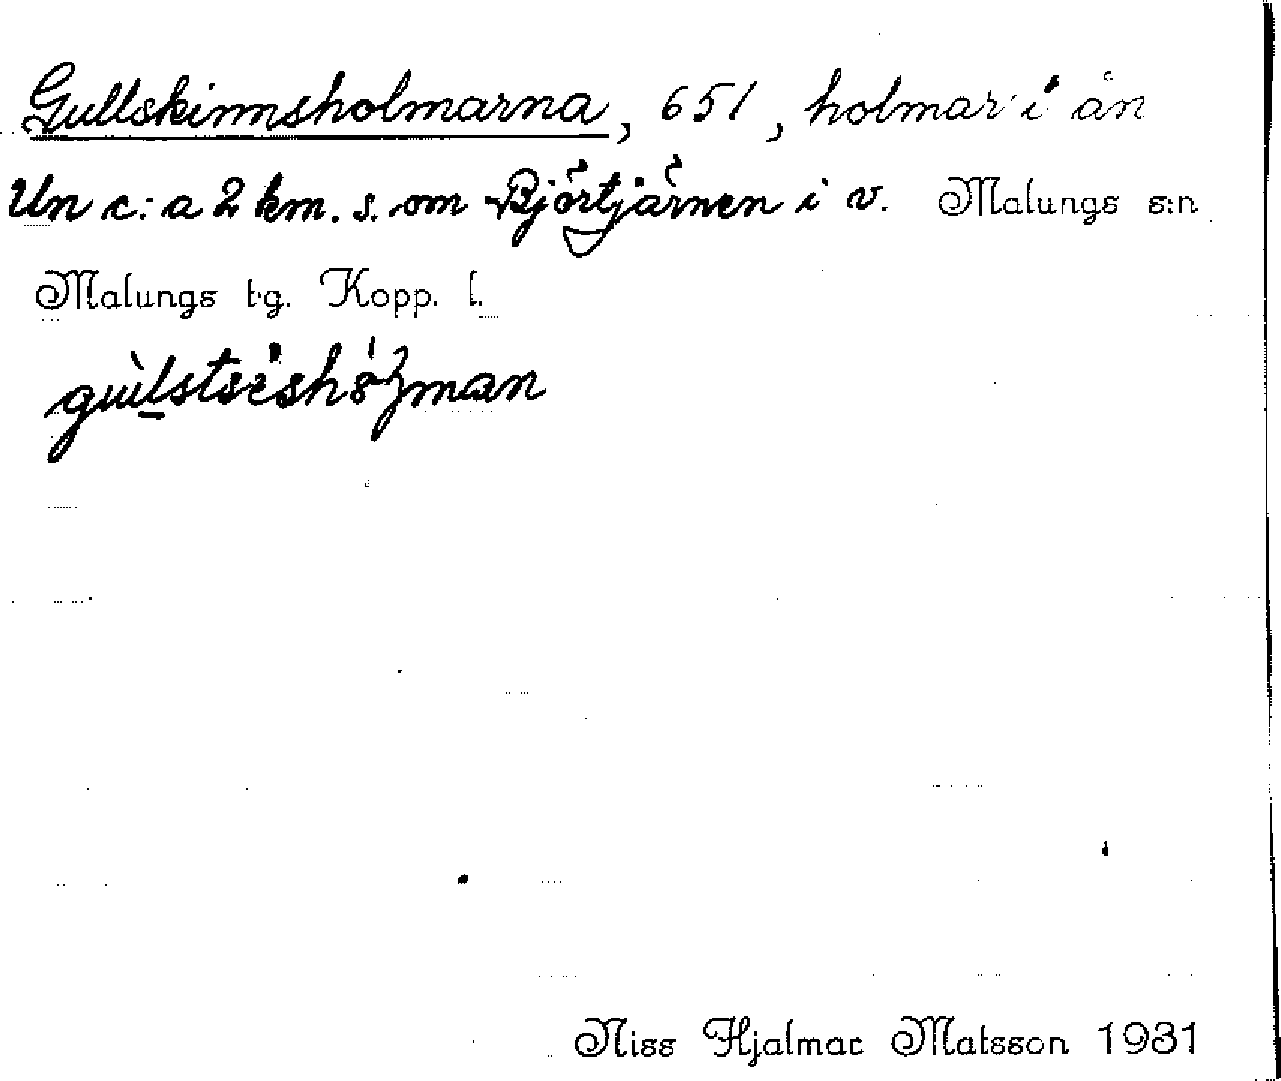 Gullskinnsholmarna, 651, holmar i ån
Un c:a 2 km. s. om Björtjärnen i v. Malungs s:n
Malungs tg. Kopp. l.
Niss Hjalmar Matsson 1931